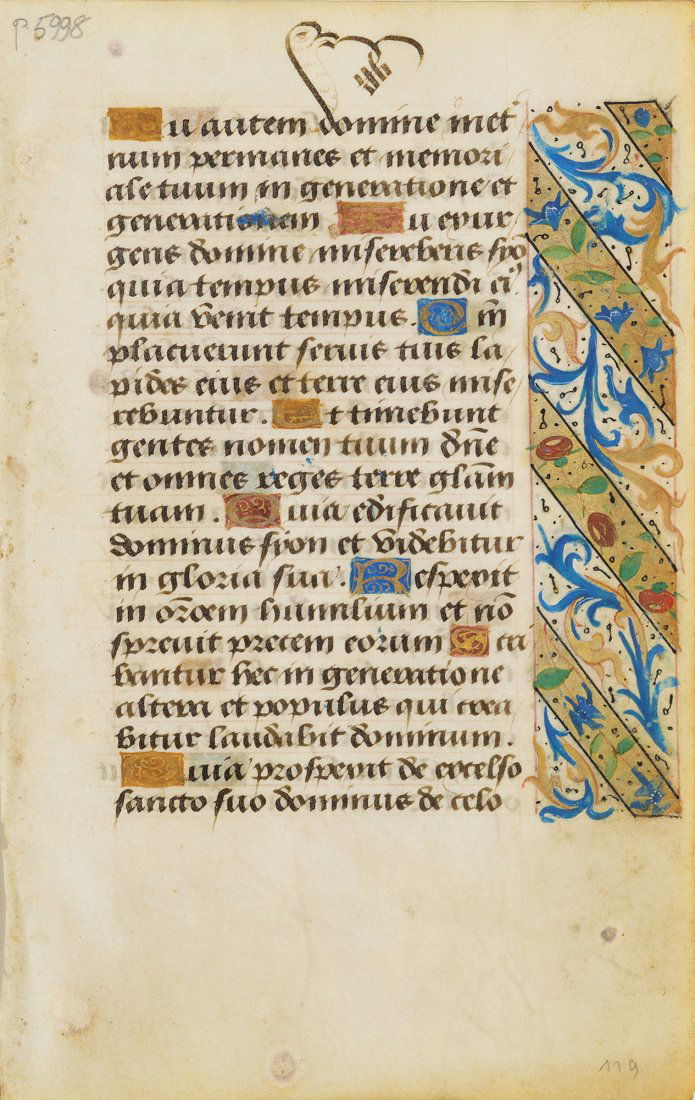 P 5998
Tu autem domine in et
num permanes et memori
ale tuum in generatione et
generationem Tu exur
gens domine misereberis syo
quia tempus miserendi ei9
quia venit tempus. Qm̄
placuerunt servis tuis la
pides eius et terre eius mise
rebuntur. Et timebunt
gentes nomen tuum dn̄e
et omnes reges terre glām
tuam. Quia edificavit
dominus syon et videbitur
in gloria sua. Respexit
in orōem humilium et nō
sprevit precem eorum Scri
bantur hec in generatione
altera et populus qui crea
bitur laudabit dominum.
Quia prospexit de excelso
sancto suo dominus de celo
119